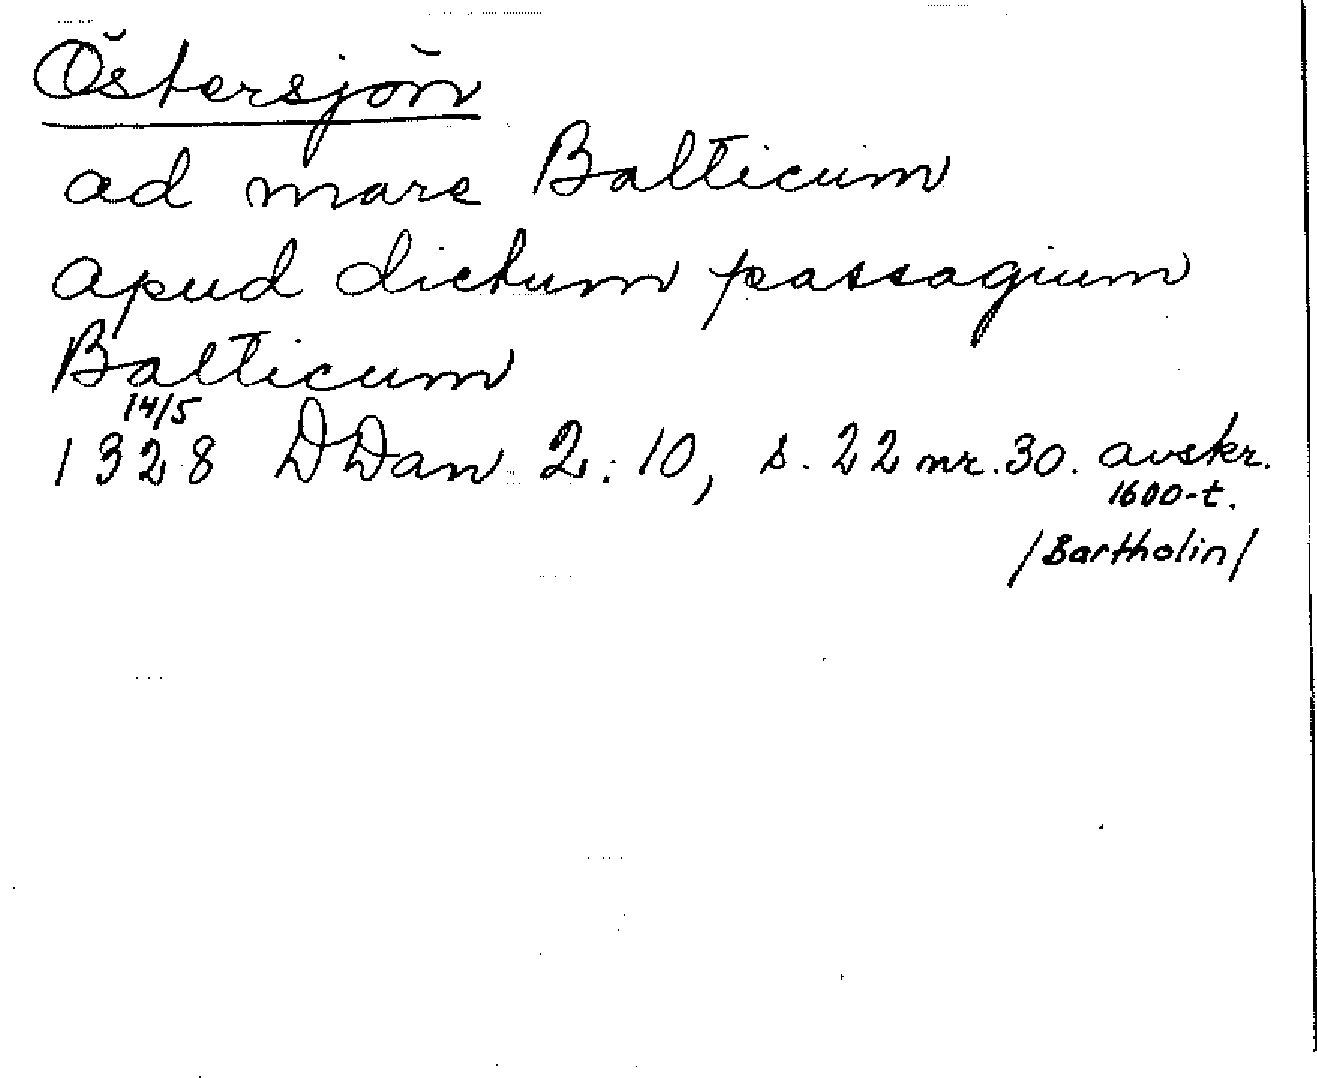 Östersjön
ad mare Balticum
apud dictum passagium
Balticum
14/5
1328 DDan 2:10, s. 22 nr. 30. avskr.
1600-t.
/Bartholin/